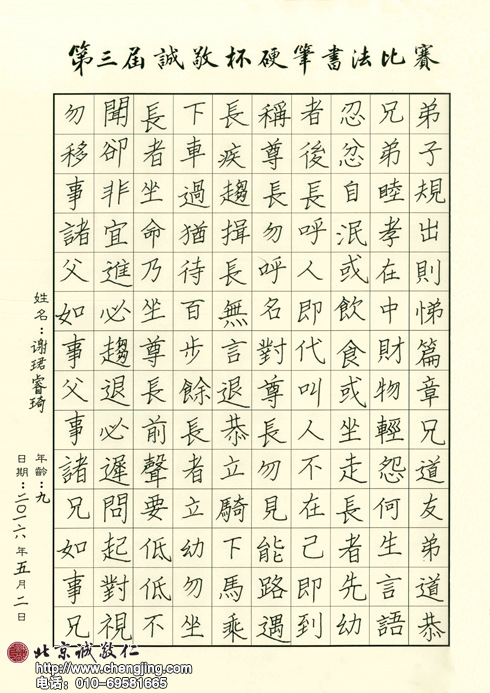 第三屆誠敬杯硬筆書法比賽
弟子規出則悌篇章兄道友弟道恭
兄弟睦孝在中財物輕怨何生言語
忍忿自泯或飲食或坐走長者先幼
者後長呼人即代叫人不在己即到
稱尊長勿呼名對尊長勿見能路遇
長疾趨揖長無言退恭立騎下馬乘
下車過猶待百步餘長者立幼勿坐
長者坐命乃坐尊長前聲要低低不
聞卻非宜進必趨退必遲問起對視
勿移事諸父如事父事諸兄如事兄
姓名：谢珺睿琦
年齡：九
日期：二〇一六年五月二日
北京誠敬仁
http://www.chengjing.com
电话：010-69581665